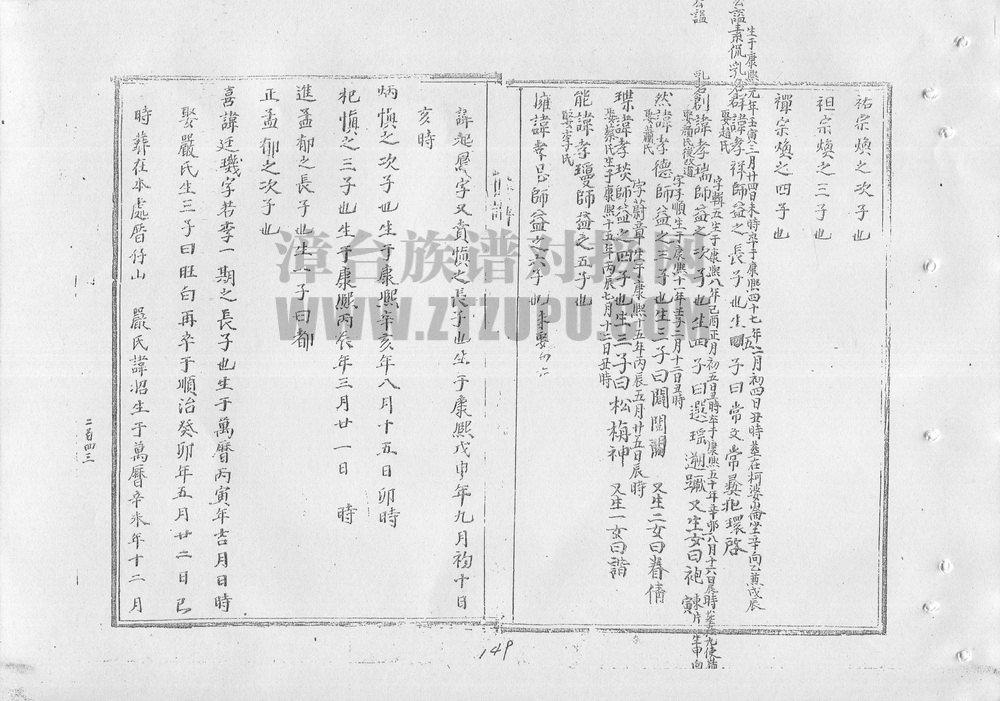 祐宗煥之次子也
袒宗煥之三子也
禪宗煥之四子也
生于康熙元年壬寅三月廿四日未時卒于康熙四十七年二月初四日丑時葬在柯婆崙坐辛向乙兼戌辰
群諱孝祥師益之長子也生五子曰常文常彝抱環啓
娶趙氏
字輯五生于康熙八年己酉正月初五日丑時卒于康熙五十年辛卯八月十六日
創諱孝瑞師益之次子也生四子曰選瑶遡蹶又生女曰袍
字子順生于康熙十一年壬子二月十二日丑時
然諱孝德師益之三子也生三子曰闊闊瀾 又生二女曰眷倩
娶蕭氏
字蔚章生于康熙十五年丙辰五月廿五日辰時
環諱孝琰師益之四子也生三子曰松梅神 又生一女曰諧
娶蔡氏生于康熙十五年丙辰七月十二日丑時
能諱孝瓊師益之五子也
娶李氏
擁諱孝忌師益之六子也 未娶
諱起鳳字又賁慎之長子也生于康熙戊申年九月初十日
亥時
炳慎之次子也生于康熙辛亥年八月十五日卯時
杞慎之三子也生于康熙丙辰年三月廿一日 時
進孟郁之長子也生一子曰都
正孟郁之次子也
喜諱廷璣字若李一期之長子也生于萬曆丙寅年吉月日時
娶嚴氏生三子曰旺白再卒于順治癸卯年五月廿二日巳
時葬在本處厝仔山 嚴氏諱招生于萬曆辛未年十二月
二百四三
149
漳台族谱对接网
WWW.ZTZUPU.COM